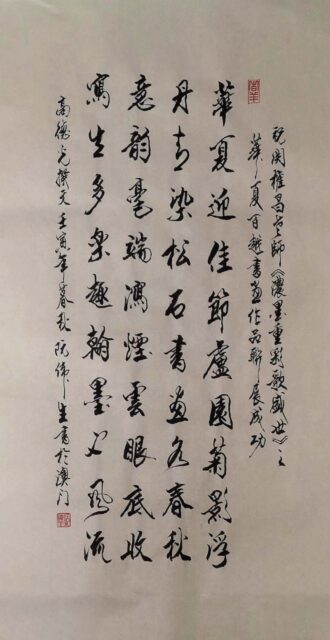 祝関權昌老師《濃墨重彩歌盛世》之
華夏百趣書画作品聯展成功
華夏迎佳節盧園菊影浮
丹青染松石書画春秋
意韵毫端瀉煙雲眼底收
寫生多樂趣翰墨風流
高德光撰文壬寅年暮秋阮偉生書於澳门